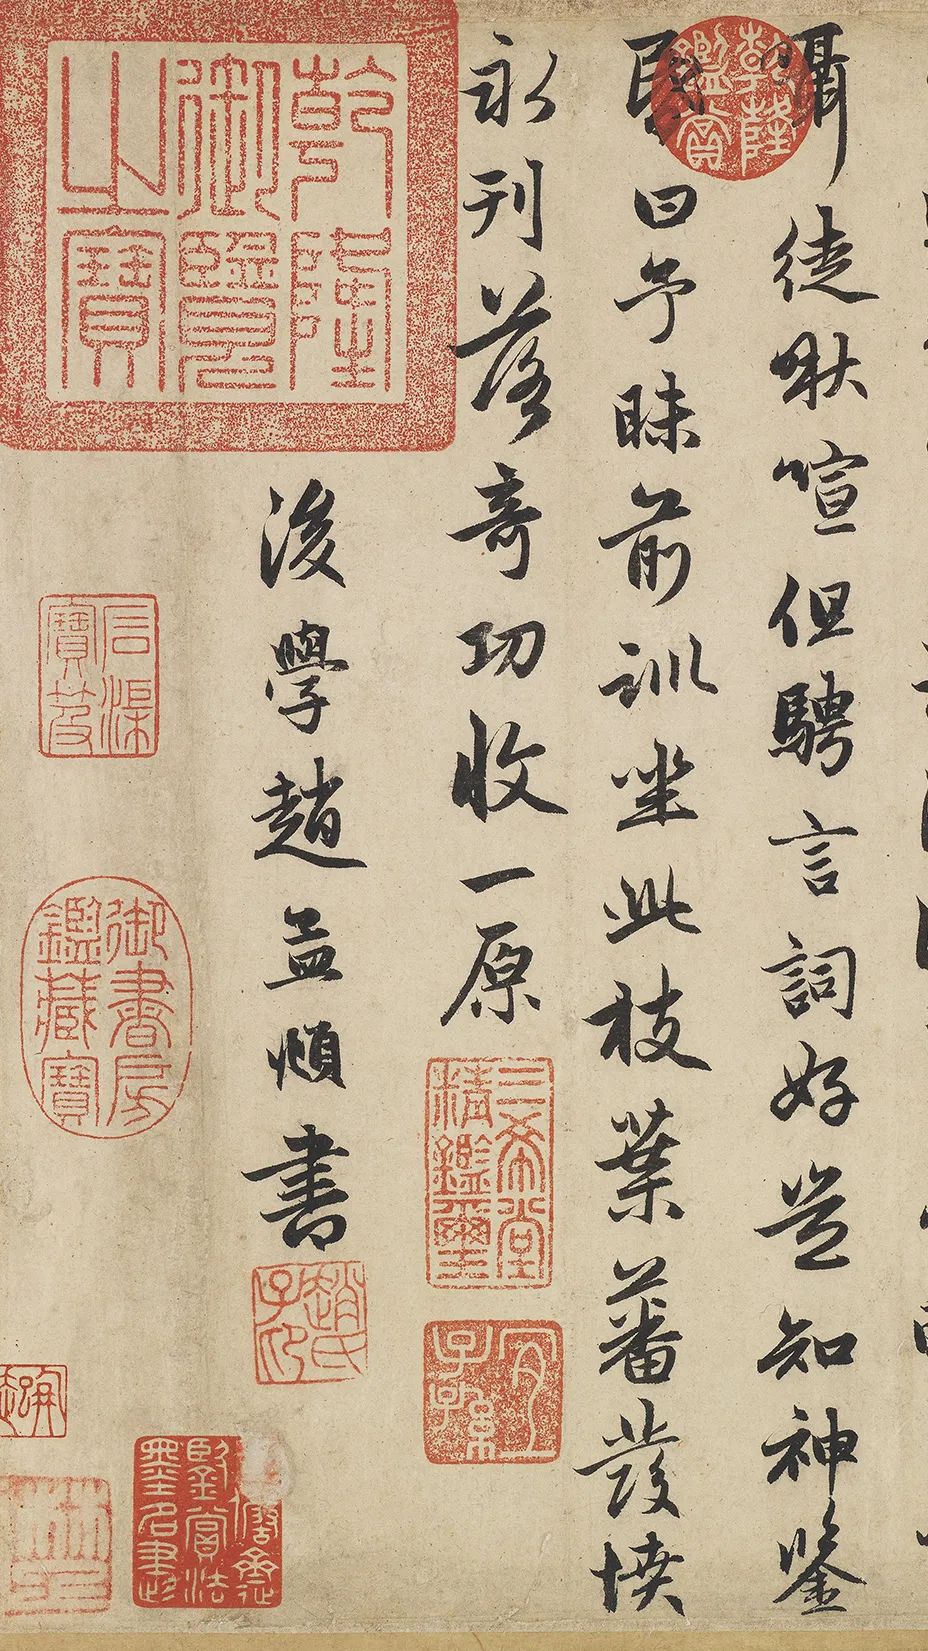 乾隆鑑賞
囁徒啾喧但騁言詞好豈知神鑒
昬曰予昧前訓坐此枝葉蕃發憤
永刊落奇功收一原
三希堂精鑑璽
宜子孫
後學趙孟頫書
趙氏子昂
乾隆御覽之寶
石渠寶笈
御書房鑑藏寶